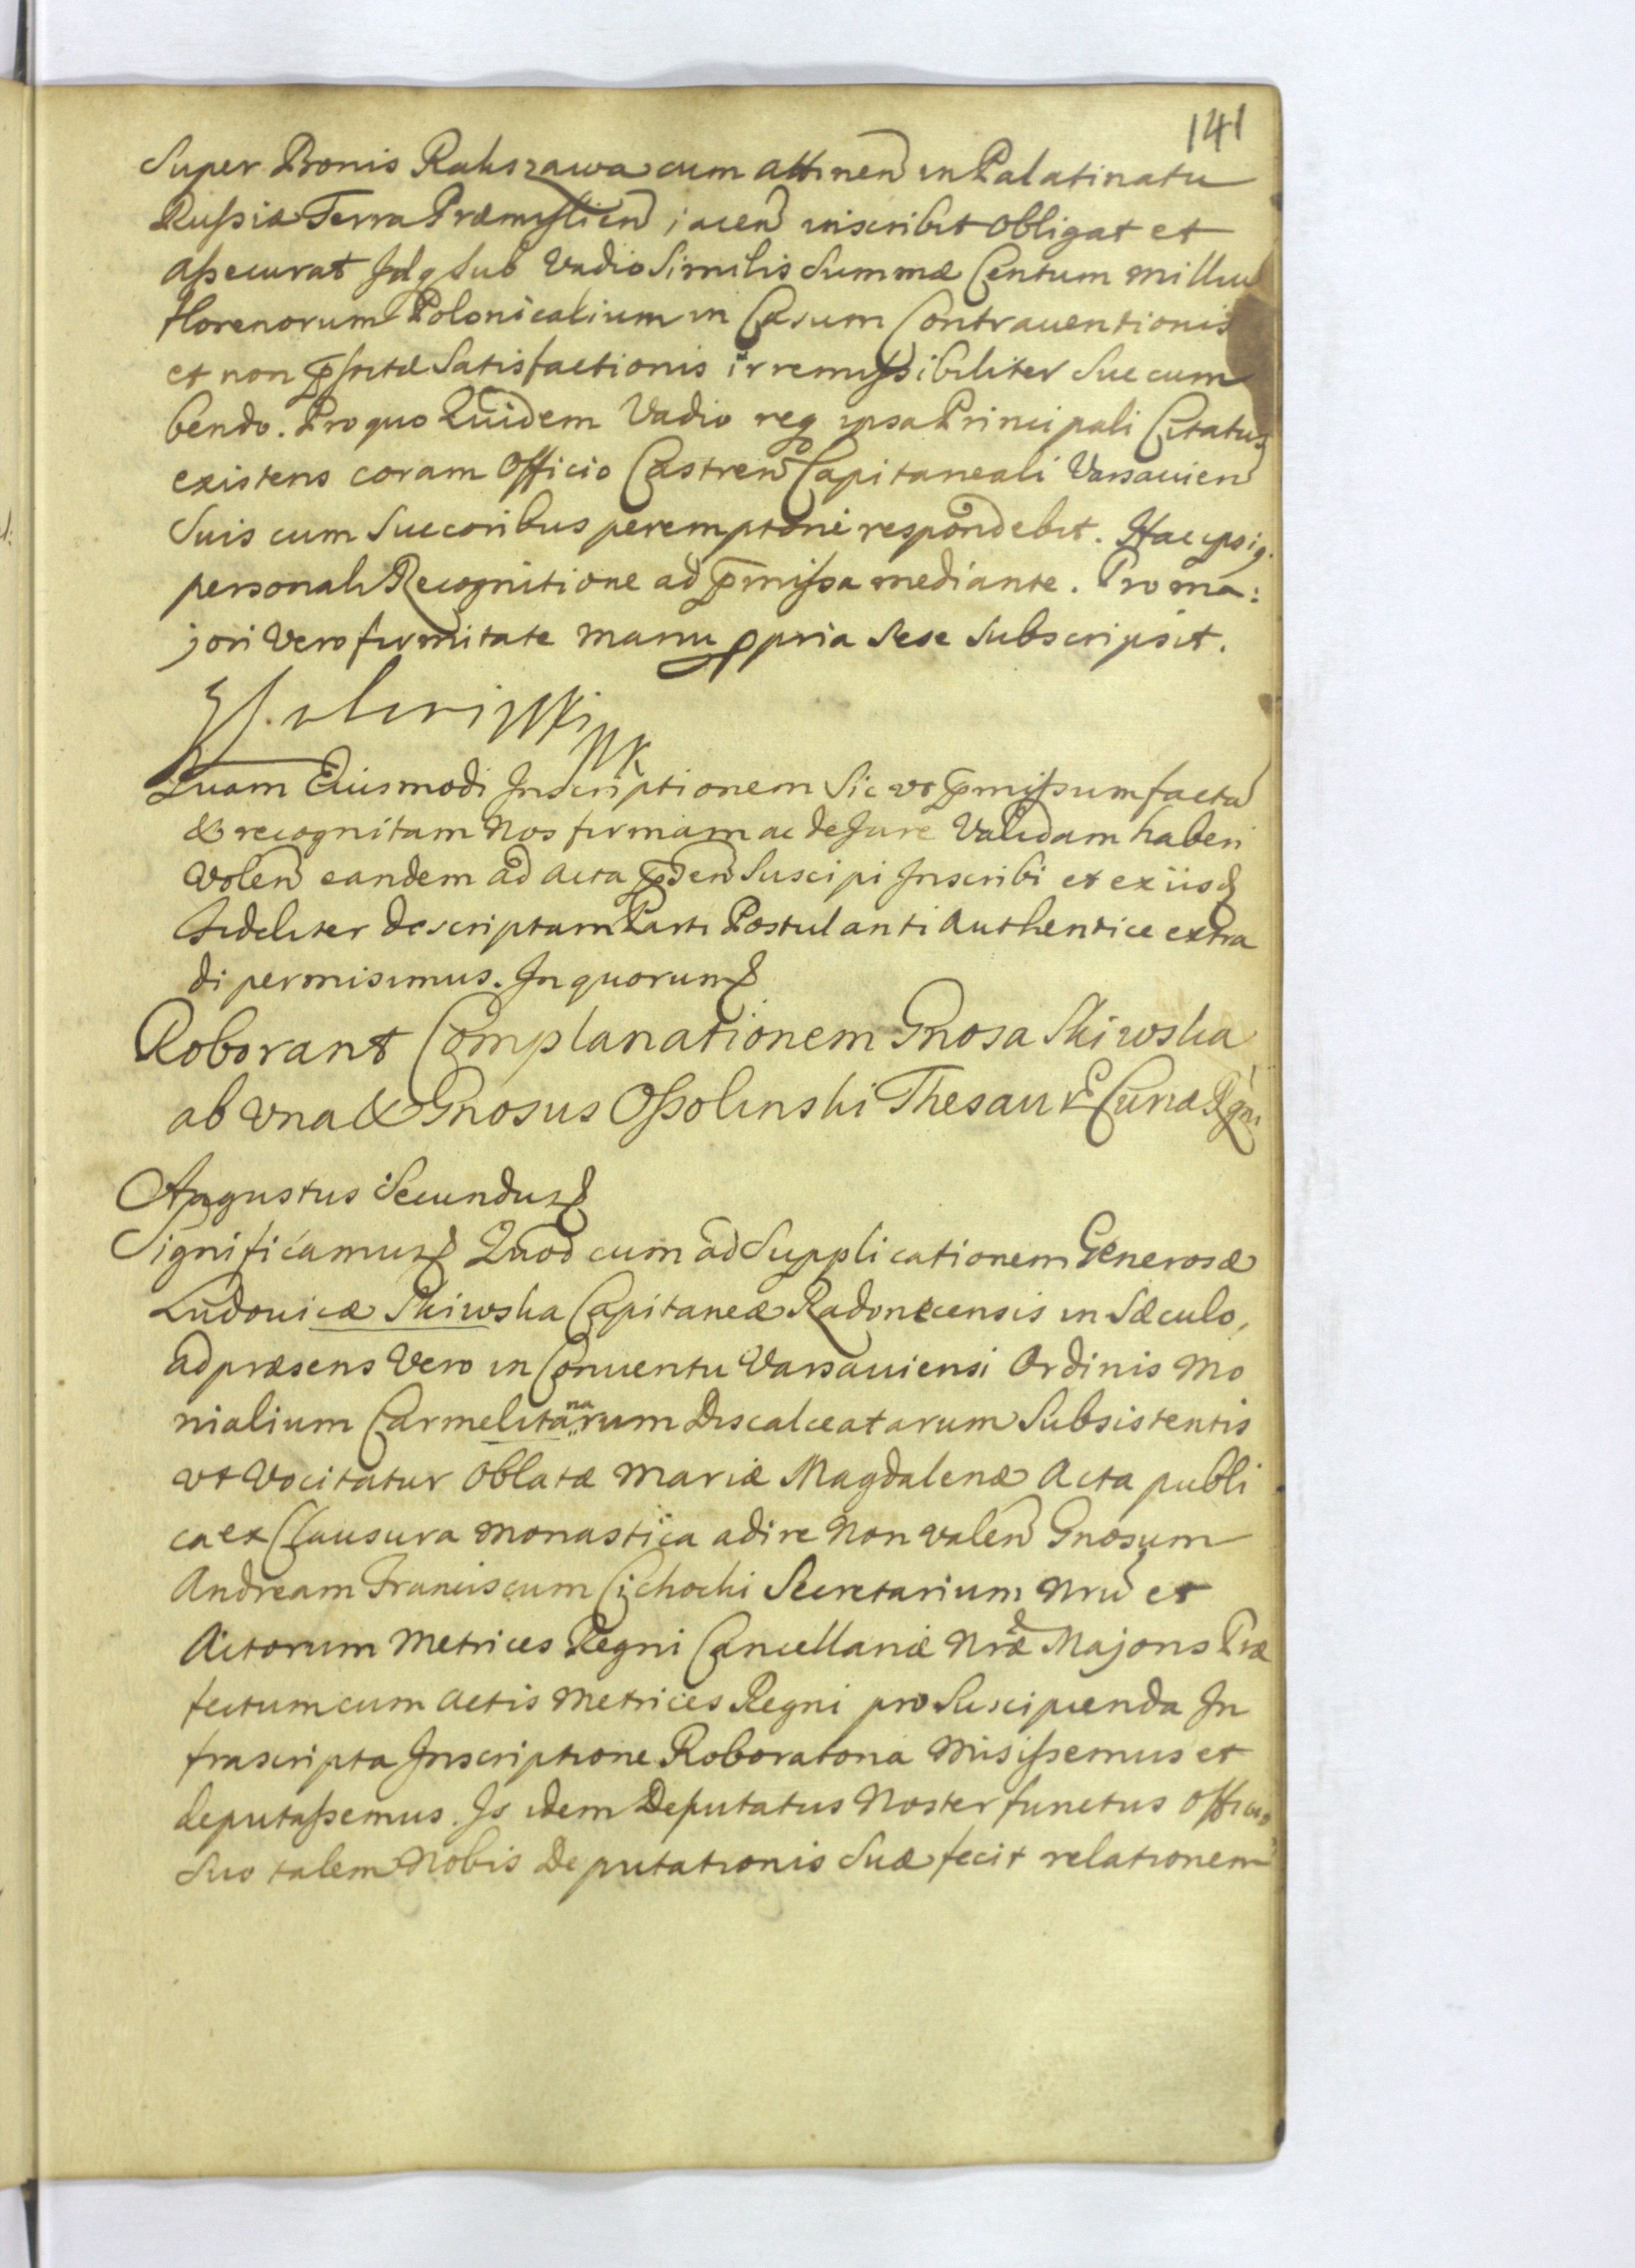 141
Super Bonis Rakszawa cum attinen in Palatinatu
Russiæ Terra Præmyslien jacen inscribit obligat et
assecurat Idq sub Vadio Similis Summæ Centum milliu
florenorum Polonicalium in Casum Contrauentionis
et non Satisfactionis irremissibiliter Succum
bendo. Pro quo Quidem Vadio req ipsa Principali Citatus
existens coram Officio Castren Capitaneali Varsauien
Suis cum Succoribus peremptorie respondebit. Hac ipsiq.
personali Recognitione ad pmissa mediante. Pro ma:
jori Vero firmitate manu ppria Sese Subscripsit.
Quam Eiusmodi Inscriptionem Sic vt pmissum facta
& recognitam Nos firmam ac de Jure Validam haberi
Volen eandem ad Acta pden Suscipi Inscribi et ex iisd
fideliter descriptam Parti Postulanti Authentice extra
di permisimus. In quorum
Roborant Complanationem Gnosa Skiwska
ab vna & Gnosus Ossolinski Thesaur Curiæ Rgni
Augustus Secundus
Significamus Quod cum ad Supplicationem Generosæ
Ludouicæ Skiwska Capitaneæ Radonecensis in Sæculo,
ad præsens Vero in Conuentu Varsauiensi Ordinis Mo
nialium Carmelitanarum Discalceatarum Subsistentis
vt Vocitatur Oblatæ Mariæ Magdalenæ Acta publi
ca ex Clausura monastica adire Non valen Gnosum
Andream Franciscum Cichocki Secretarium Nru et
Actorum Metrices Regni Cancellariæ Nræ Majoris Præ
fectum cum Actis Metrices Regni pro Suscipienda In
frascripta Inscriptione Roboratoria misissemus et
deputassemus. Is idem Deputatus Noster functus Officio
Suo talem Nobis Deputationis Suæ fecit relationem